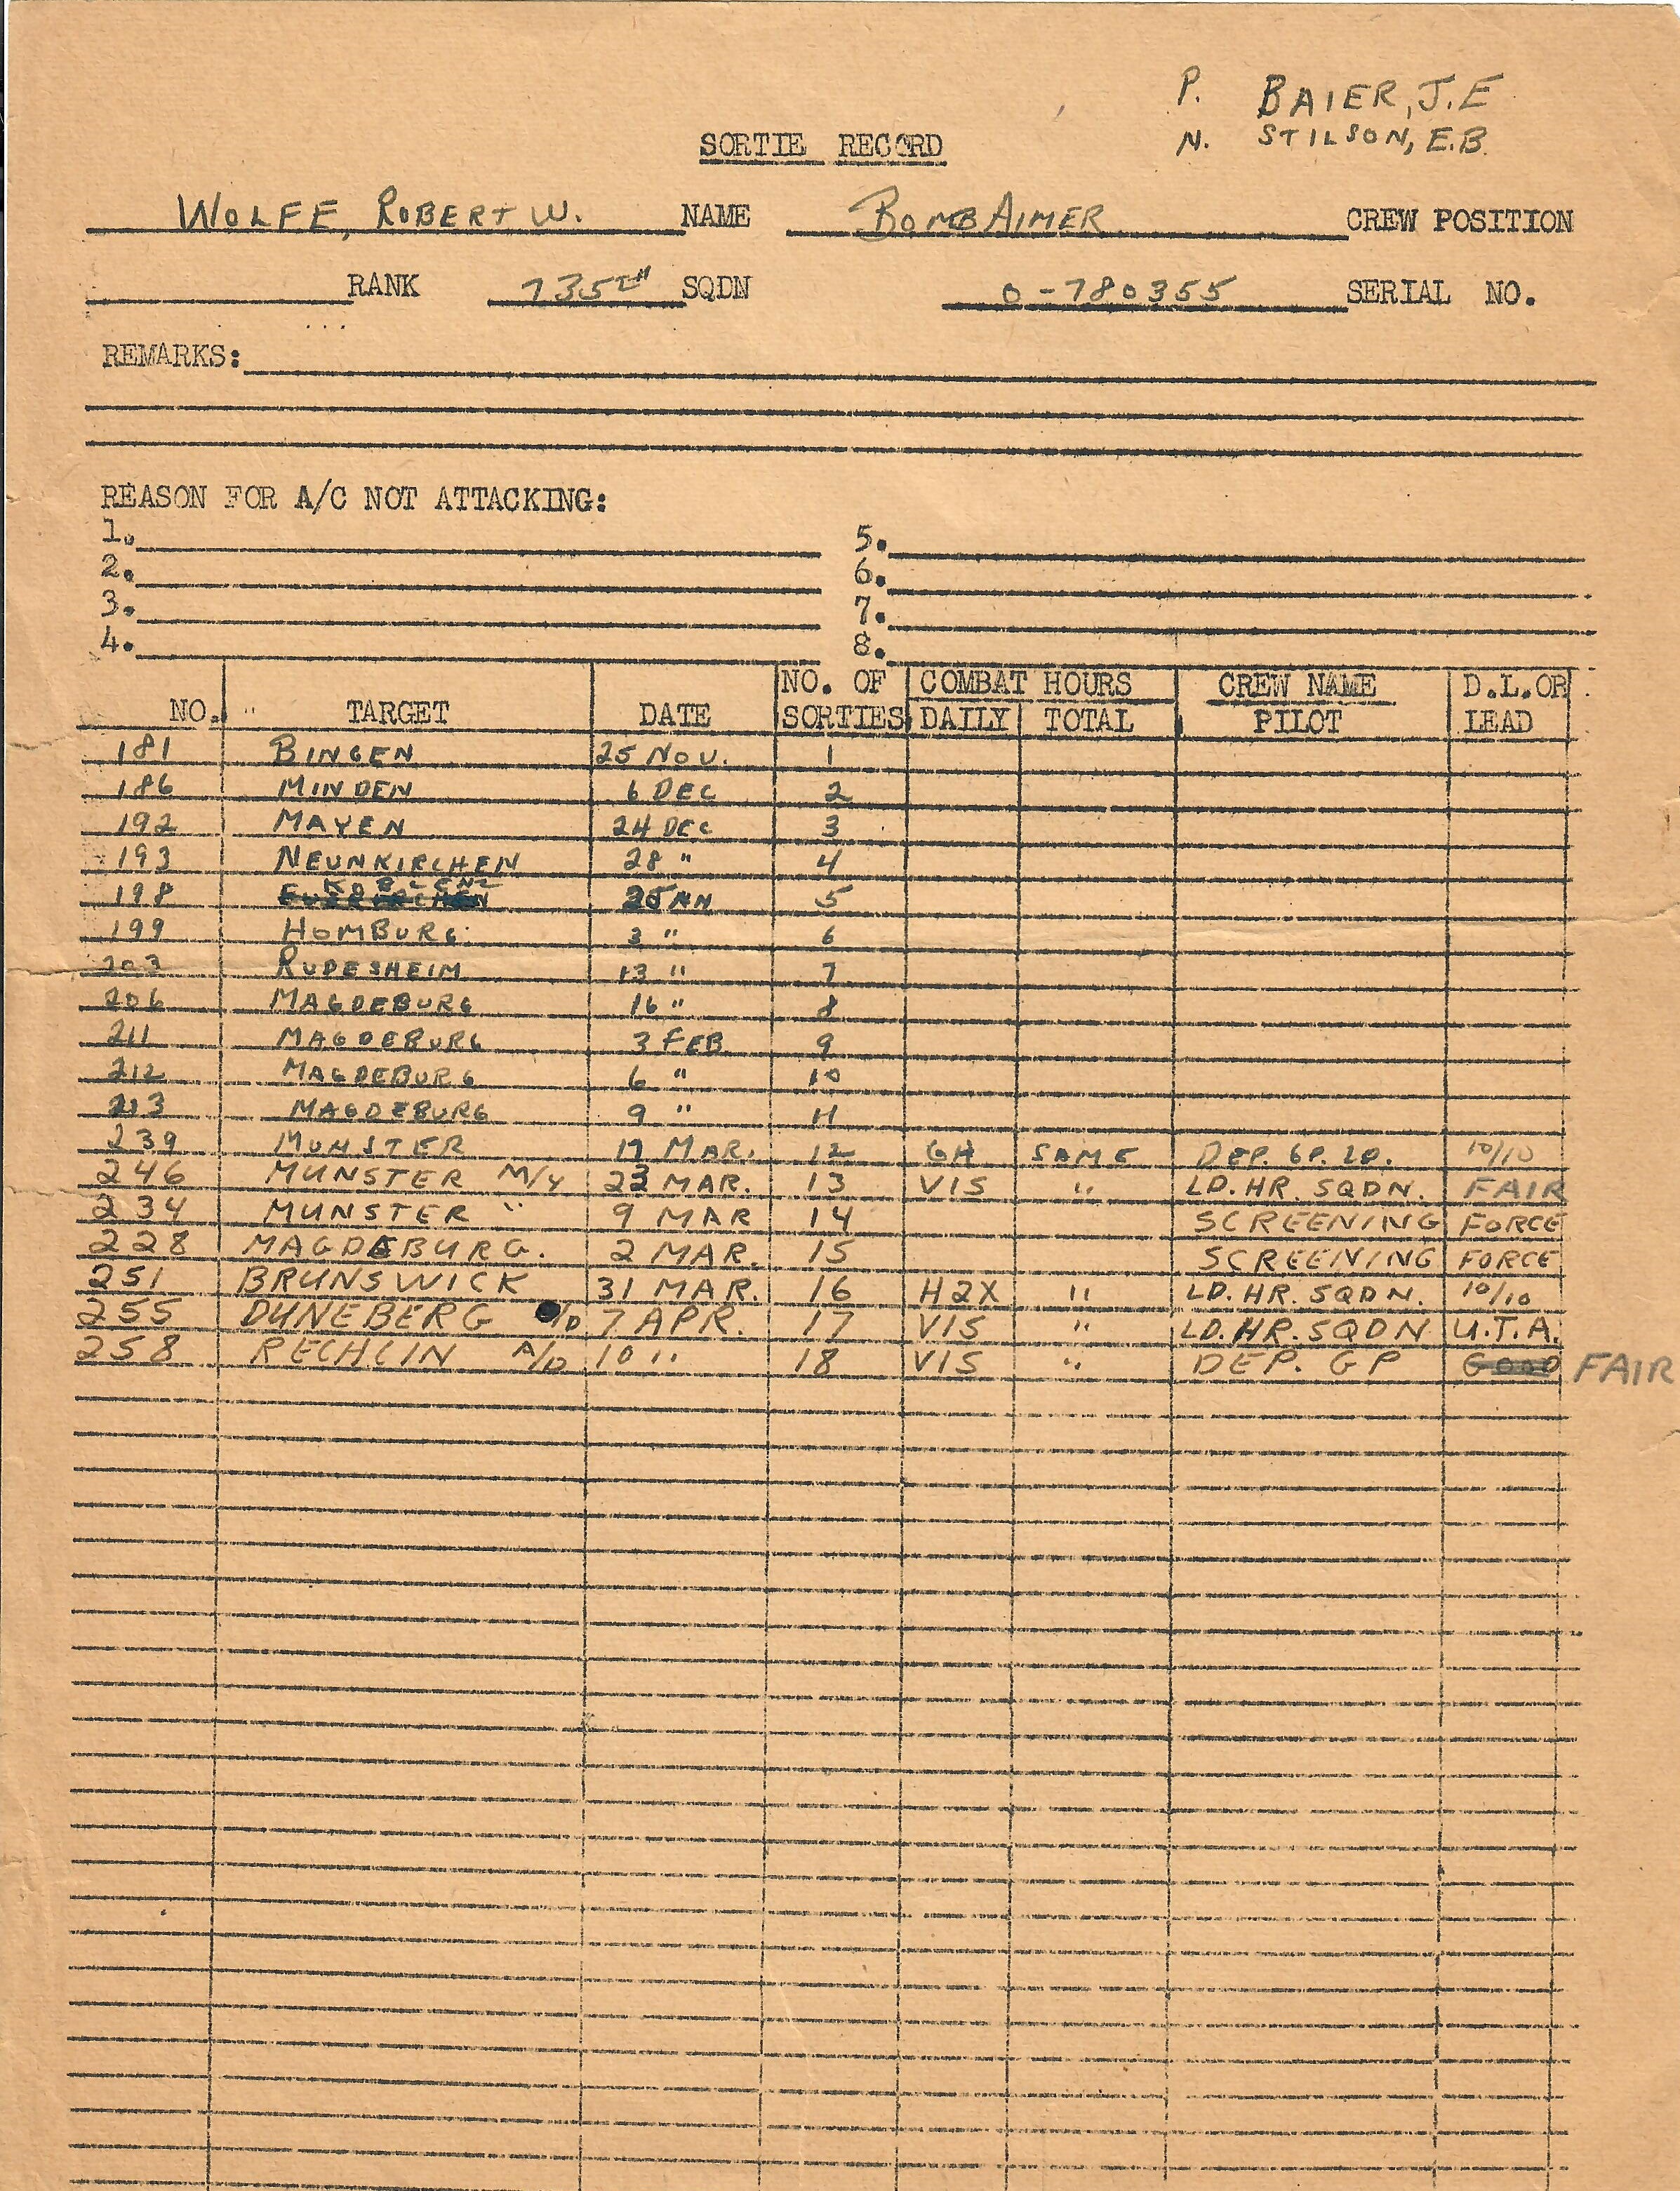 P. BAIER, J.E
N. STILSON, E.B.
SORTIE RECORD
WOLFE, ROBERT W. NAME BOMBAIMER CREW POSITION
RANK 735TH SQDN O-780355 SERIAL NO.
REMARKS:
REASON FOR A/C NOT ATTACKING:
1. 5.
2. 6.
3. 7.
4. 8.
NO. TARGET DATE NO. OF SORTIES COMBAT HOURS DAILY TOTAL CREW NAME PILOT D.L.OR LEAD
181 BINGEN 25 NOV. 1
186 MINDEN 6 DEC 2
192 MAYEN 24 DEC 3
193 NEUNKIRCHEN 28 " 4
198 KOBLENZ 2 JAN 5
199 HOMBURG 3 " 6
203 RUDESHEIM 13 " 7
206 MAGDEBURG 16 " 8
211 MAGDEBURG 3 FEB. 9
212 MAGDEBURG 6 " 10
213 MAGDEBURG 9 " 11
239 MUNSTER 17 MAR. 12 GH SAME DEP. GP. LD. 10/10
246 MUNSTER M/Y 23 MAR. 13 VIS " LD. HR. SQDN. FAIR
234 MUNSTER " 9 MAR 14 SCREENING FORCE
228 MAGDEBURG. 2 MAR. 15 SCREENING FORCE
251 BRUNSWICK 31 MAR. 16 H2X " LD. HR. SQDN. 10/10
255 DUNEBERG /D 7 APR. 17 VIS " LD. HR. SQDN U.T.A.
258 RECHLIN A/D 10 " 18 VIS " DEP. GP GOOD FAIR